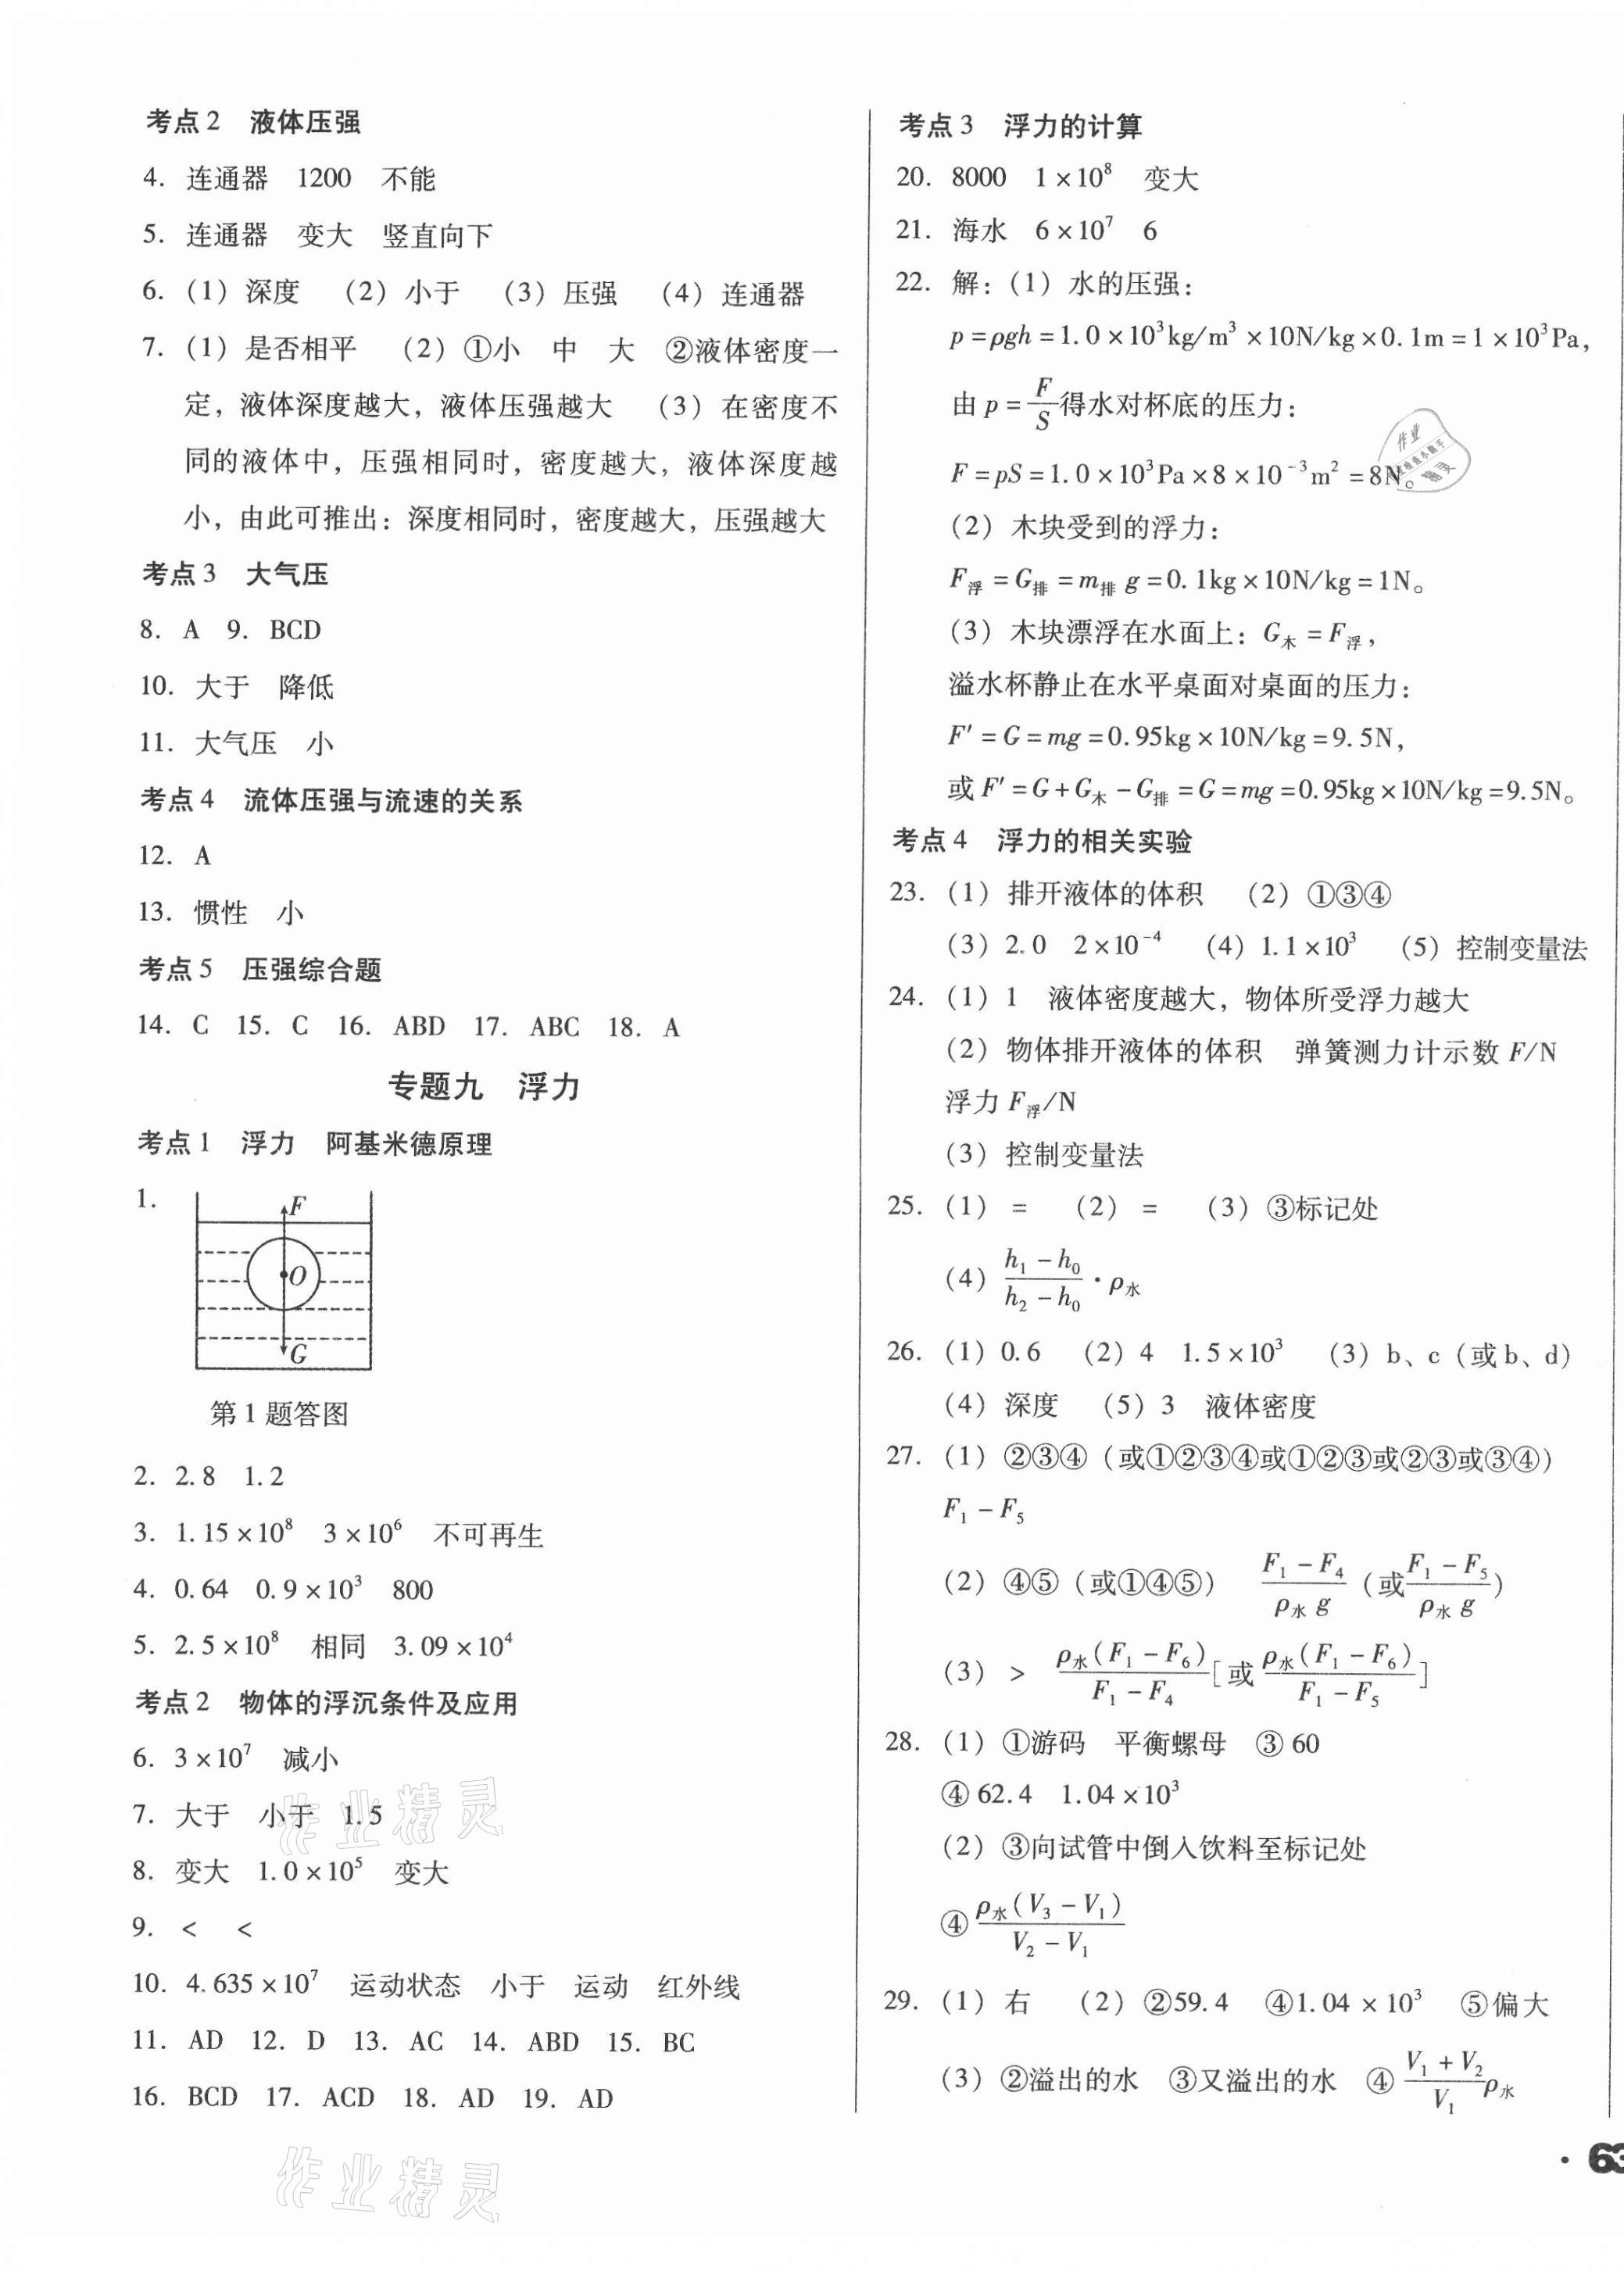 考点2 液体压强
4. 连通器 1200 不能
5. 连通器 变大 竖直向下
6. (1) 深度 (2) 小于 (3) 压强 (4) 连通器
7. (1) 是否相平 (2) ①小 中 大 ②液体密度一
定，液体深度越大，液体压强越大 (3) 在密度不
同的液体中，压强相同时，密度越大，液体深度越
小，由此可推出：深度相同时，密度越大，压强越大
考点3 大气压
8. A 9. BCD
10. 大于 降低
11. 大气压 小
考点4 流体压强与流速的关系
12. A
13. 惯性 小
考点5 压强综合题
14. C 15. C 16. ABD 17. ABC 18. A
专题九 浮力
考点1 浮力 阿基米德原理
1.
F
O
G
第1题答图
2. 2.8 1.2
3. 1.15×10⁸ 3×10⁶ 不可再生
4. 0.64 0.9×10³ 800
5. 2.5×10⁸ 相同 3.09×10⁴
考点2 物体的浮沉条件及应用
6. 3×10⁷ 减小
7. 大于 小于 1.5
8. 变大 1.0×10⁵ 变大
9. < <
10. 4.635×10⁷ 运动状态 小于 运动 红外线
11. AD 12. D 13. AC 14. ABD 15. BC
16. BCD 17. ACD 18. AD 19. AD
作业精灵
作业精灵
考点3 浮力的计算
20. 8000 1×10⁸ 变大
21. 海水 6×10⁷ 6
22. 解：(1) 水的压强：
p=ρgh=1.0×10³kg/m³×10N/kg×0.1m=1×10³Pa，
由p=F/S得水对杯底的压力：
F=pS=1.0×10³Pa×8×10⁻³m²=8N。
(2) 木块受到的浮力：
F浮=G排=m排g=0.1kg×10N/kg=1N。
(3) 木块漂浮在水面上：G木=F浮，
溢水杯静止在水平桌面对桌面的压力：
F′=G=mg=0.95kg×10N/kg=9.5N，
或F′=G+G木−G排=G=mg=0.95kg×10N/kg=9.5N。
考点4 浮力的相关实验
23. (1) 排开液体的体积 (2) ①③④
(3) 2.0 2×10⁻⁴ (4) 1.1×10³ (5) 控制变量法
24. (1) 1 液体密度越大，物体所受浮力越大
(2) 物体排开液体的体积 弹簧测力计示数F/N
浮力F浮/N
(3) 控制变量法
25. (1) = (2) = (3) ③标记处
(4) (h₁−h₀)/(h₂−h₀)·ρ水
26. (1) 0.6 (2) 4 1.5×10³ (3) b、c（或b、d）
(4) 深度 (5) 3 液体密度
27. (1) ②③④（或①②③④或①②③或②③或③④）
F₁−F₅
(2) ④⑤（或①④⑤） (F₁−F₄)/(ρ水g)（或(F₁−F₅)/(ρ水g)）
(3) > ρ水(F₁−F₆)/(F₁−F₄)[或ρ水(F₁−F₆)/(F₁−F₅)]
28. (1) ①游码 平衡螺母 ③60
④62.4 1.04×10³
(2) ③向试管中倒入饮料至标记处
④ρ水(V₃−V₁)/(V₂−V₁)
29. (1) 右 (2) ②59.4 ④1.04×10³ ⑤偏大
(3) ②溢出的水 ③又溢出的水 ④(V₁+V₂)/V₁ρ水
· 63